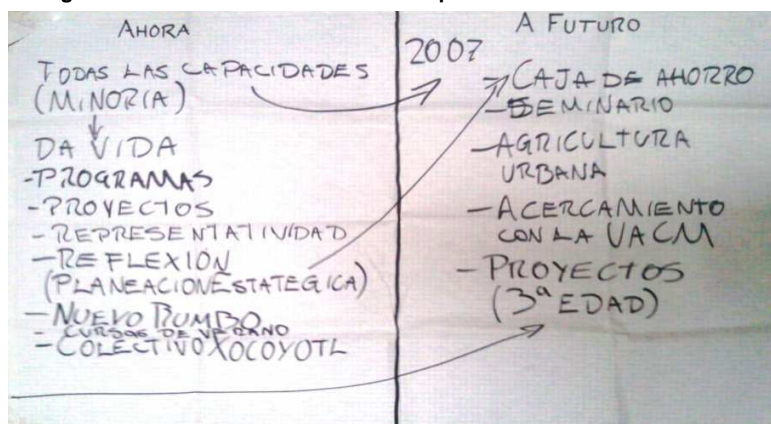 AHORA
TODAS LAS CAPACIDADES
(MINORIA)
DA VIDA
-PROGRAMAS
-PROYECTOS
-REPRESENTATIVIDAD
-REFLEXIÓN
(PLANEACION ESTATEGICA)
-NUEVO RUMBO
-CURSOS DE VERANO
-COLECTIVO XOCOYOTL
A FUTURO
2007
-CAJA DE AHORRO
-SEMINARIO
-AGRICULTURA
URBANA
-ACERCAMIENTO
CON LA UACM
-PROYECTOS
(3ª EDAD)